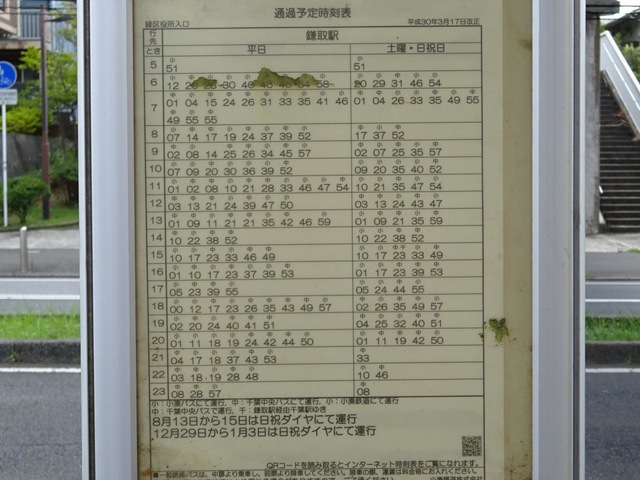 通過予定時刻表
緑区役所入口 平成30年3月17日改正
行先 鎌取駅
とき 平日 土曜・日祝日
5 51 51
6 12 30 58 20 29 31 46 54
7 01 04 15 24 26 31 33 35 41 46 01 04 26 33 35 49 55
49 55 55
8 07 14 17 19 24 37 39 52 17 37 52
9 02 08 14 25 26 34 45 57 02 07 25 35 57
10 07 09 20 30 36 39 52 09 20 35 40 52
11 01 02 08 10 21 28 33 46 47 54 10 21 35 47 54
12 03 13 21 24 39 47 50 03 13 24 43 47
13 01 09 11 21 21 35 42 46 59 01 09 21 35 59
14 10 22 38 52 10 22 38 52
15 10 17 23 33 46 49 10 17 23 33 49
16 01 10 17 23 37 39 53 01 17 23 39 53
17 05 23 39 55 05 24 44 55
18 00 12 17 23 26 35 43 49 57 02 26 35 49 57
19 02 20 24 40 41 51 04 25 32 40 51
20 01 11 18 19 24 42 44 50 01 11 19 42 50
21 04 17 18 37 43 53 33
22 03 18 19 28 48 10 46
23 08 28 57 08
小：小湊バスにて運行, 中：千葉中央バスにて運行, 小：小湊鉄道にて運行
中：千葉中央バスで運行, 千：鎌取駅経由千葉駅ゆき
8月13日から15日は日祝ダイヤにて運行
12月29日から1月3日は日祝ダイヤにて運行
QRコードを読み取るとインターネット時刻表をご覧になれます。